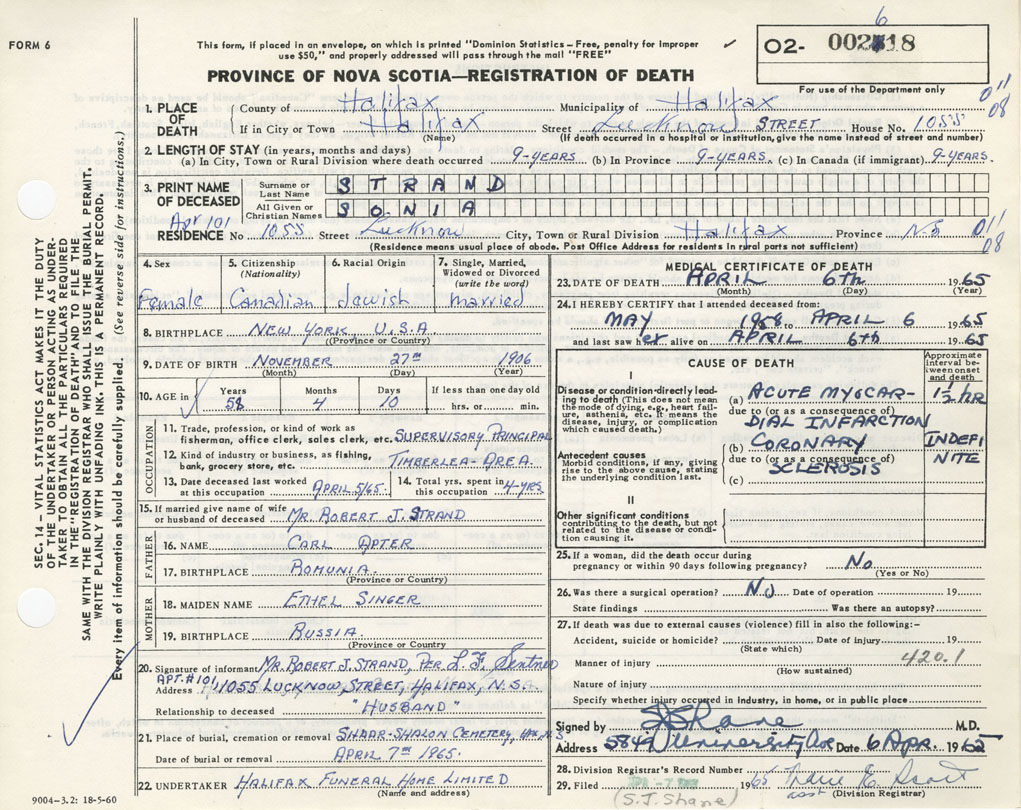 6
FORM 6
This form, if placed in an envelope, on which is printed "Dominion Statistics – Free, penalty for improper
use $50," and properly addressed will pass through the mail "FREE"
O2- 002
18
PROVINCE OF NOVA SCOTIA—REGISTRATION OF DEATH
For use of the Department only
1. PLACE OF DEATH
County of Halifax Municipality of Halifax
If in City or Town Halifax (Name) Street Lucknow STREET House No. 1055
(If death occurred in hospital or institution, give the name instead of street and number)
011
08
2. LENGTH OF STAY (in years, months and days)
(a) In City, Town or Rural Division where death occurred 9-YEARS (b) In Province 9-YEARS. (c) In Canada (if immigrant) 9-YEARS.
3. PRINT NAME OF DECEASED
Surname or Last Name STRAND
All Given or Christian Names SONIA
Apt 101
RESIDENCE No 1055 Street Lucknow City, Town or Rural Division Halifax Province N.S
011
08
(Residence means usual place of abode. Post Office Address for residents in rural parts not sufficient)
4. Sex
Female
5. Citizenship (Nationality)
Canadian
6. Racial Origin
Jewish
7. Single, Married, Widowed or Divorced (write the word)
married
8. BIRTHPLACE NEW YORK U.S.A
(Province or Country)
9. DATE OF BIRTH NOVEMBER 27TH 1906
(Month) (Day) (Year)
10. AGE in
Years Months Days If less than one day old
58 4 10 hrs. or min.
OCCUPATION
11. Trade, profession, or kind of work as
fisherman, office clerk, sales clerk, etc. SUPERVISORY PRINCIPAL
12. Kind of industry or business, as fishing,
bank, grocery store, etc. TIMBERLEA-AREA.
13. Date deceased last worked at this occupation APRIL 5/65.
14. Total yrs. spent in this occupation 4-YRS.
15. If married give name of wife
or husband of deceased MR. ROBERT J. STRAND
FATHER
16. NAME CARL APTER
17. BIRTHPLACE ROMUNIA.
(Province or Country)
MOTHER
18. MAIDEN NAME ETHEL SINGER
19. BIRTHPLACE RUSSIA.
(Province or Country)
20. Signature of informant MR. ROBERT J. STRAND, PER L. F. Sentner
APT. #101
Address 1055 LUCKNOW STREET, HALIFAX, N.S.
Relationship to deceased "HUSBAND"
21. Place of burial, cremation or removal SHAAR-SHALON CEMETERY, HFX. N.S
Date of burial or removal APRIL 7TH 1965.
22. UNDERTAKER HALIFAX FUNERAL HOME LIMITED
(Name and address)
MEDICAL CERTIFICATE OF DEATH
23. DATE OF DEATH APRIL 6th 1965
(Month) (Day) (Year)
24. I HEREBY CERTIFY that I attended deceased from:
MAY 1958 to APRIL 6 1965
and last saw her alive on APRIL 6th 1965
CAUSE OF DEATH
Approximate interval between onset and death
I
Disease or condition directly leading to death (This does not mean the mode of dying, e.g., heart failure, asthenia, etc. It means the disease, injury, or complication which caused death.)
(a) ACUTE MYOCAR-
due to (or as a consequence of)
DIAL INFARCTION
1½ HR
(b) CORONARY
due to (or as a consequence of)
SCLEROSIS
INDEFI
NITE
Antecedent causes
Morbid conditions, if any, giving rise to the above cause, stating the underlying condition last.
(c)
II
Other significant conditions
contributing to the death, but not related to the disease or condition causing it.
25. If a woman, did the death occur during
pregnancy or within 90 days following pregnancy? No
(Yes or No)
26. Was there a surgical operation? No Date of operation 19
State findings Was there an autopsy?
27. If death was due to external causes (violence) fill in also the following:–
Accident, suicide or homicide? Date of injury 19
(State which)
Manner of injury 420.1
(How sustained)
Nature of injury
Specify whether injury occurred in industry, in home, or in public place
Signed by SJShane M.D.
Address 5849 University Ave Date 6 Apr. 1965
28. Division Registrar's Record Number
29. Filed 1965
(Division Registrar)
asst
(S.J. Shane)
SEC. 14 – VITAL STATISTICS ACT MAKES IT THE DUTY
OF THE UNDERTAKER OR PERSON ACTING AS UNDER-
TAKER TO OBTAIN ALL THE PARTICULARS REQUIRED
IN THE "REGISTRATION OF DEATH" AND TO FILE THE
SAME WITH THE DIVISION REGISTRAR WHO SHALL ISSUE THE BURIAL PERMIT.
WRITE PLAINLY WITH UNFADING INK. THIS IS A PERMANENT RECORD.
Every item of information should be carefully supplied. (See reverse side for instructions.)
9004-3.2: 18-5-60